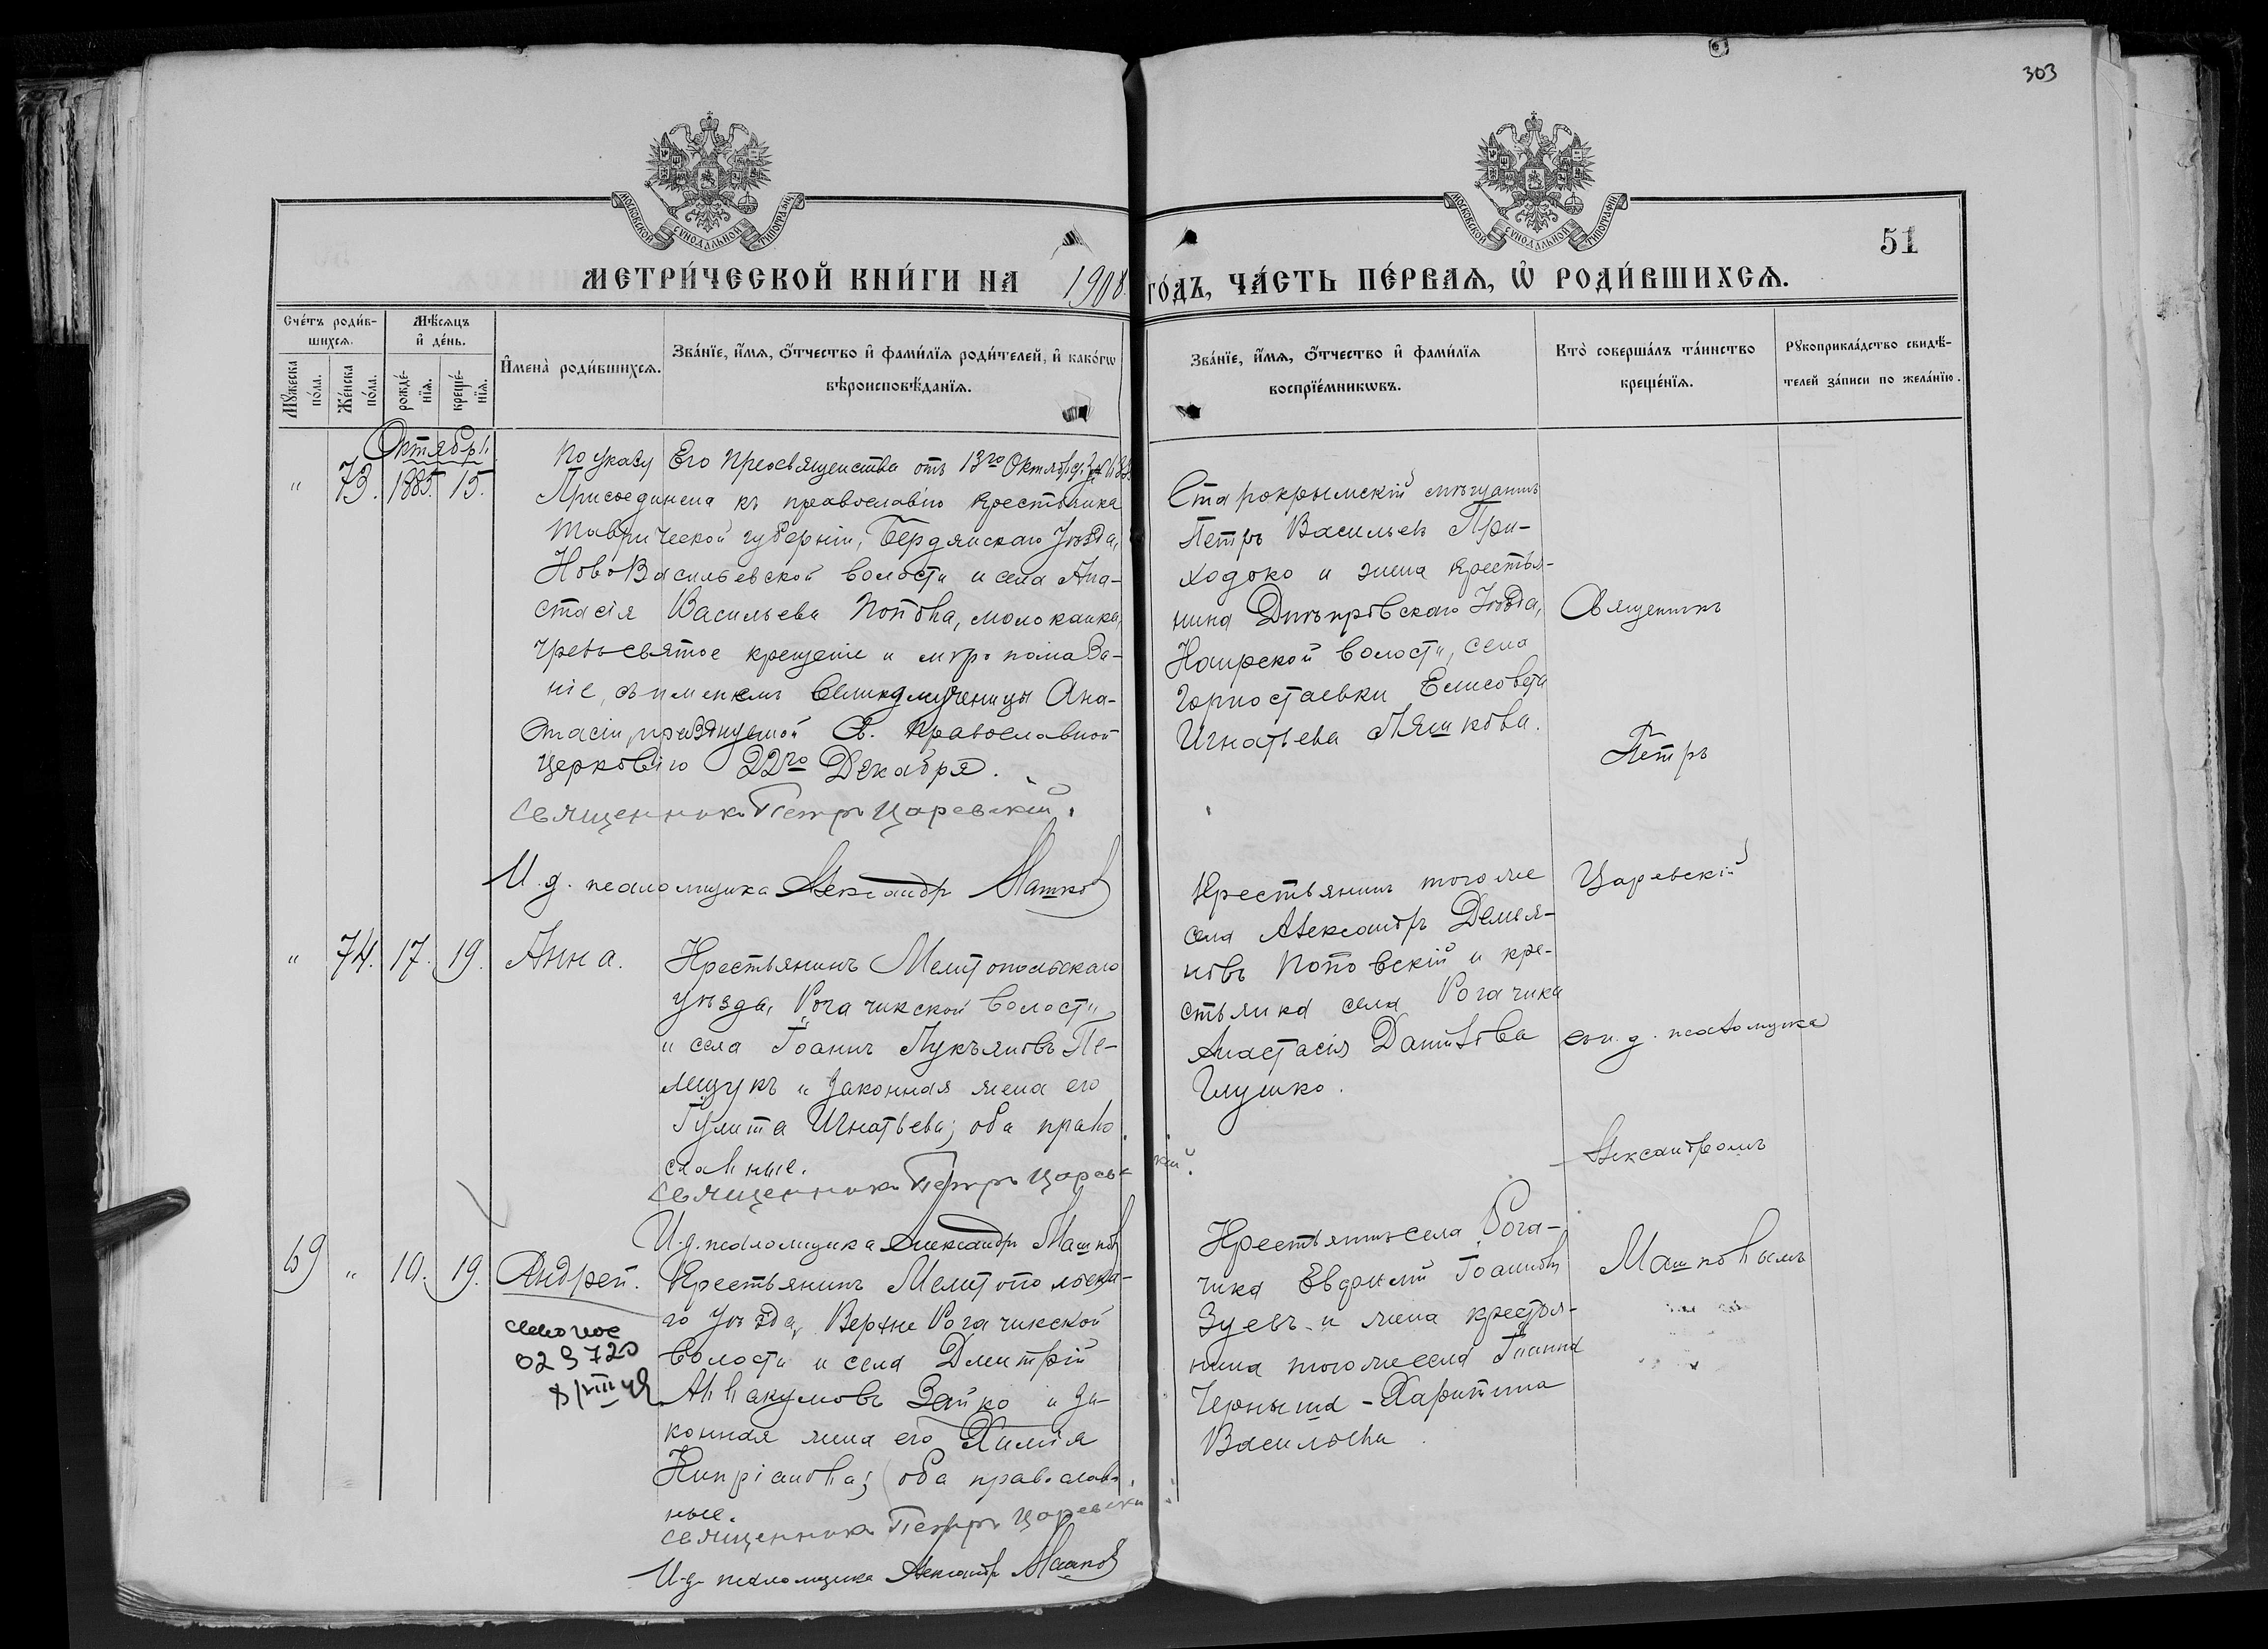 303
МОСКОВСКОЙ СУНОДАЛЬНОЙ ТИПОГРАФІИ
МОСКОВСКОЙ СУНОДАЛЬНОЙ ТИПОГРАФІИ
51
МЕТРИ́ЧЕСКОЙ КНИ́ГИ НА 1908 ГО́ДЪ, ЧА́СТЬ ПЕ́РВАѦ, Ѡ҆ РОДИ́ВШИХСѦ.
Сче́тъ роди́в-
шихсѧ.
Мѣ́сѧцъ
и҆ де́нь.
Мꙋ́жеска
по́ла.
Же́нска
по́ла.
рожде́-
нїѧ.
креще́-
нїѧ.
И҆мена̀ роди́вшихсѧ.
Зва́нїе, и҆́мѧ, ѻ҆́тчество и҆ фами́лїѧ роди́телей, и҆ како́гѡ
вѣроисповѣ́данїѧ.
Зва́нїе, и҆́мѧ, ѻ҆́тчество и҆ фами́лїѧ
воспрїе́мникѡвъ.
Кто̀ соверша́лъ та́инство
креще́нїѧ.
Рꙋкоприкла́дство свидѣ́-
телей за́писи по жела́нїю.
Октябрь
" 73. 1885. 15.
По указу Его Преосвященства отъ 13го Октября
Присоединена къ православію крестьянка
Таврической губерніи, Бердянскаго Уѣзда,
Ново Васильевской волости и села Ана-
стасія Васильева Попова, молоканка,
чрезъ святое крещеніе и мѵропомаза-
ніе, съ именемъ Великомученицы Ана-
стасіи, празднуемой Св. Православной
Церковію 22го Декабря.
Священникъ Петръ Царевскій.
И. д. псаломщика Александръ Машковъ
Старокрымскій мѣщанинъ
Петръ Васильевъ При-
ходько и жена крестья-
нина Днѣпровскаго Уѣзда,
Каирской волости, села
Горностаевки Елисавета
Игнатьева Ляшкова.
Священникъ
Петръ
Царевскій
" 74. 17. 19. Анна.
Крестьянинъ Мелитопольскаго
уѣзда, Рогачикской волости
и села Іоаннъ Лукьяновъ Пе-
лищукъ и законная жена его
Іулита Игнатьева; оба право
славные.
Священникъ Петръ Царевскій.
И. д. псаломщика Александръ Машковъ
Крестьянинъ того же
села Александръ Демья-
новъ Поповскій и кре-
стьянка села Рогачика
Анастасія Данилова
Глушко.
съ и. д. псаломщика
Александромъ
Машковымъ
69 " 10. 19. Андрей.
023720
Крестьянинъ Мелитопольска-
го Уѣзда, Верхне Рогачикской
волости и села Димитрій
Аввакумовъ Зайко и за-
конная жена его Химія
Кипріанова; оба православ-
ные.
Священникъ Петръ Царевскій
И. д. псаломщика Александръ Машковъ
Крестьянинъ села Рога-
чика Евфимій Іоанновъ
Зуевъ и жена крестья-
нина того же села Іоанна
Черныша - Харитина
Васильева.